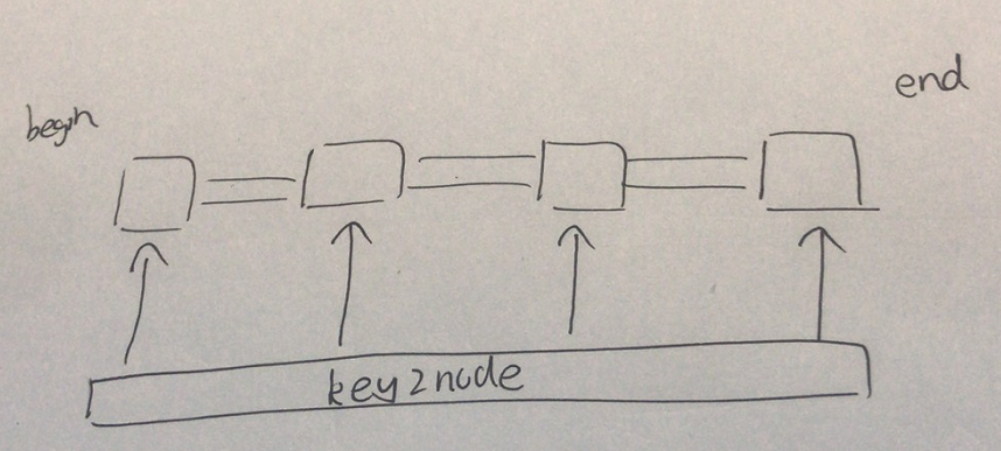 begin
end
key2node